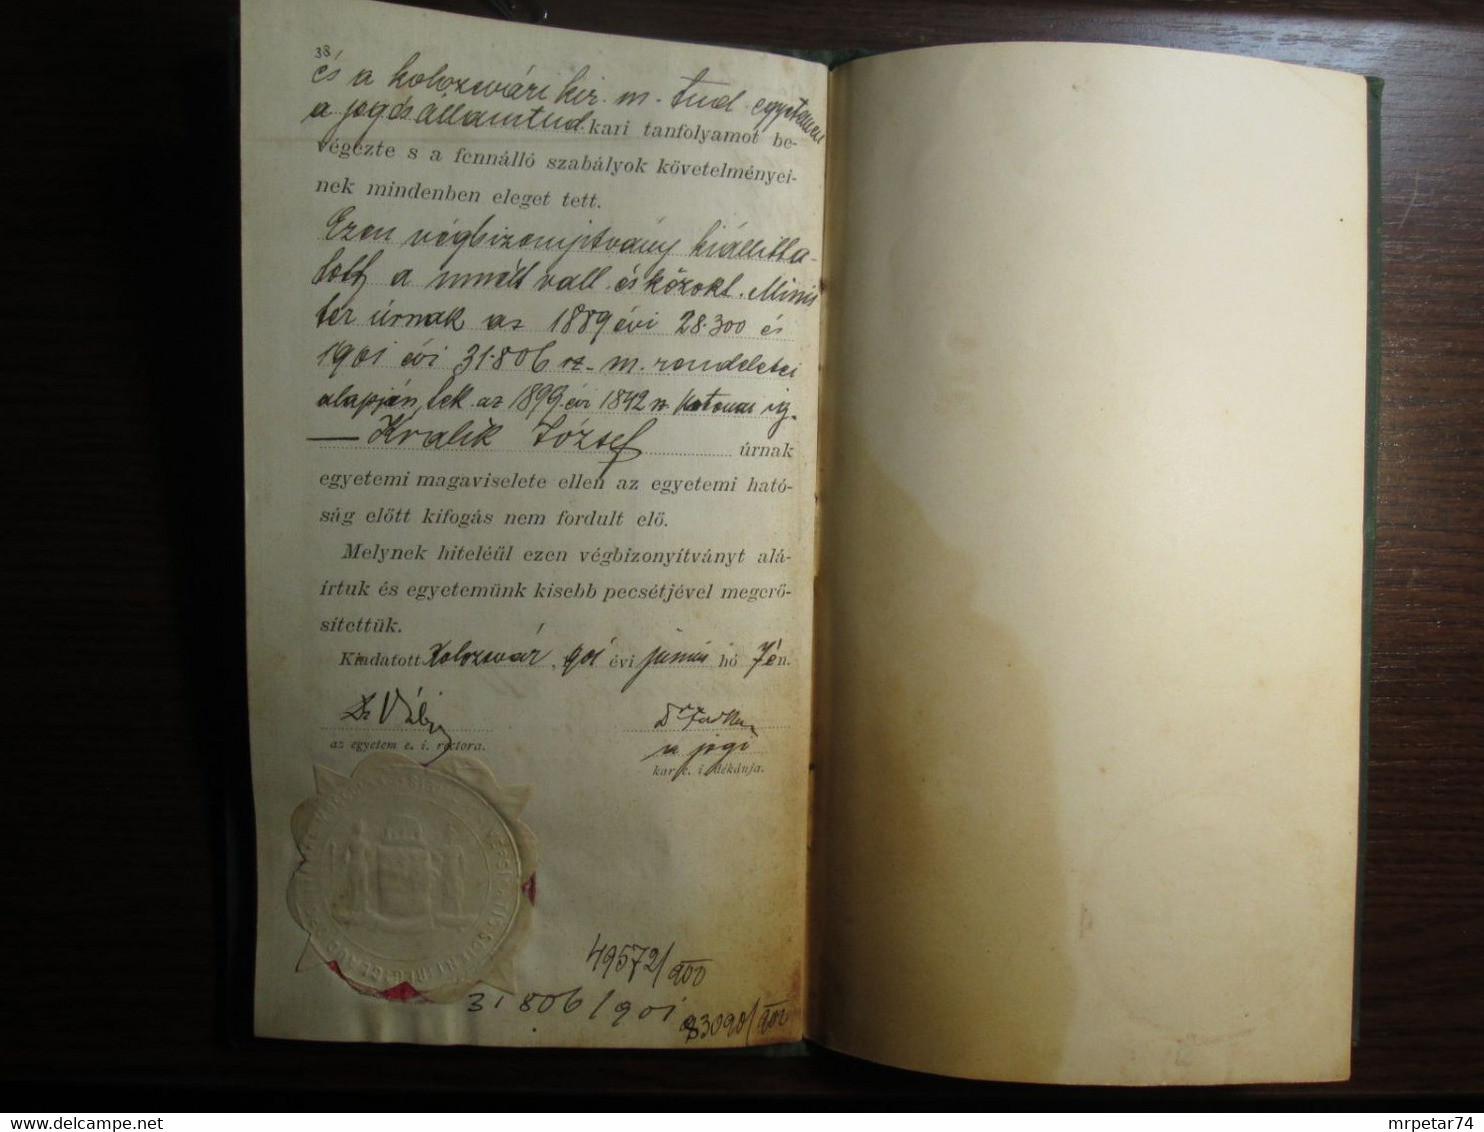 38
és a kolozsvári kir. m. tud. egyetemen
a jog és államtud. kari tanfolyamot be-
végezte s a fennálló szabályok követelményei-
nek mindenben eleget tett.
Ezen végbizonyitvány kiállitta-
tott a vall. és közokt. Minis
ter úrnak az 1889 évi 28.300 és
1901 évi 31.806 sz. m. rendeletei
alapján, az 1899 évi 1842
— Kralik József úrnak
egyetemi magaviselete ellen az egyetemi ható-
ság előtt kifogás nem fordult elő.
Melynek hiteléűl ezen végbizonyítványt alá-
írtuk és egyetemünk kisebb pecsétjével megerő-
sítettük.
Kiadatott Kolozsvár, 901 évi junius hó 7én.
az egyetem e. i. rectora.
a jogi
kar e. i. dékánja.
49572/900
31806/901
83090/900
mrpetar74